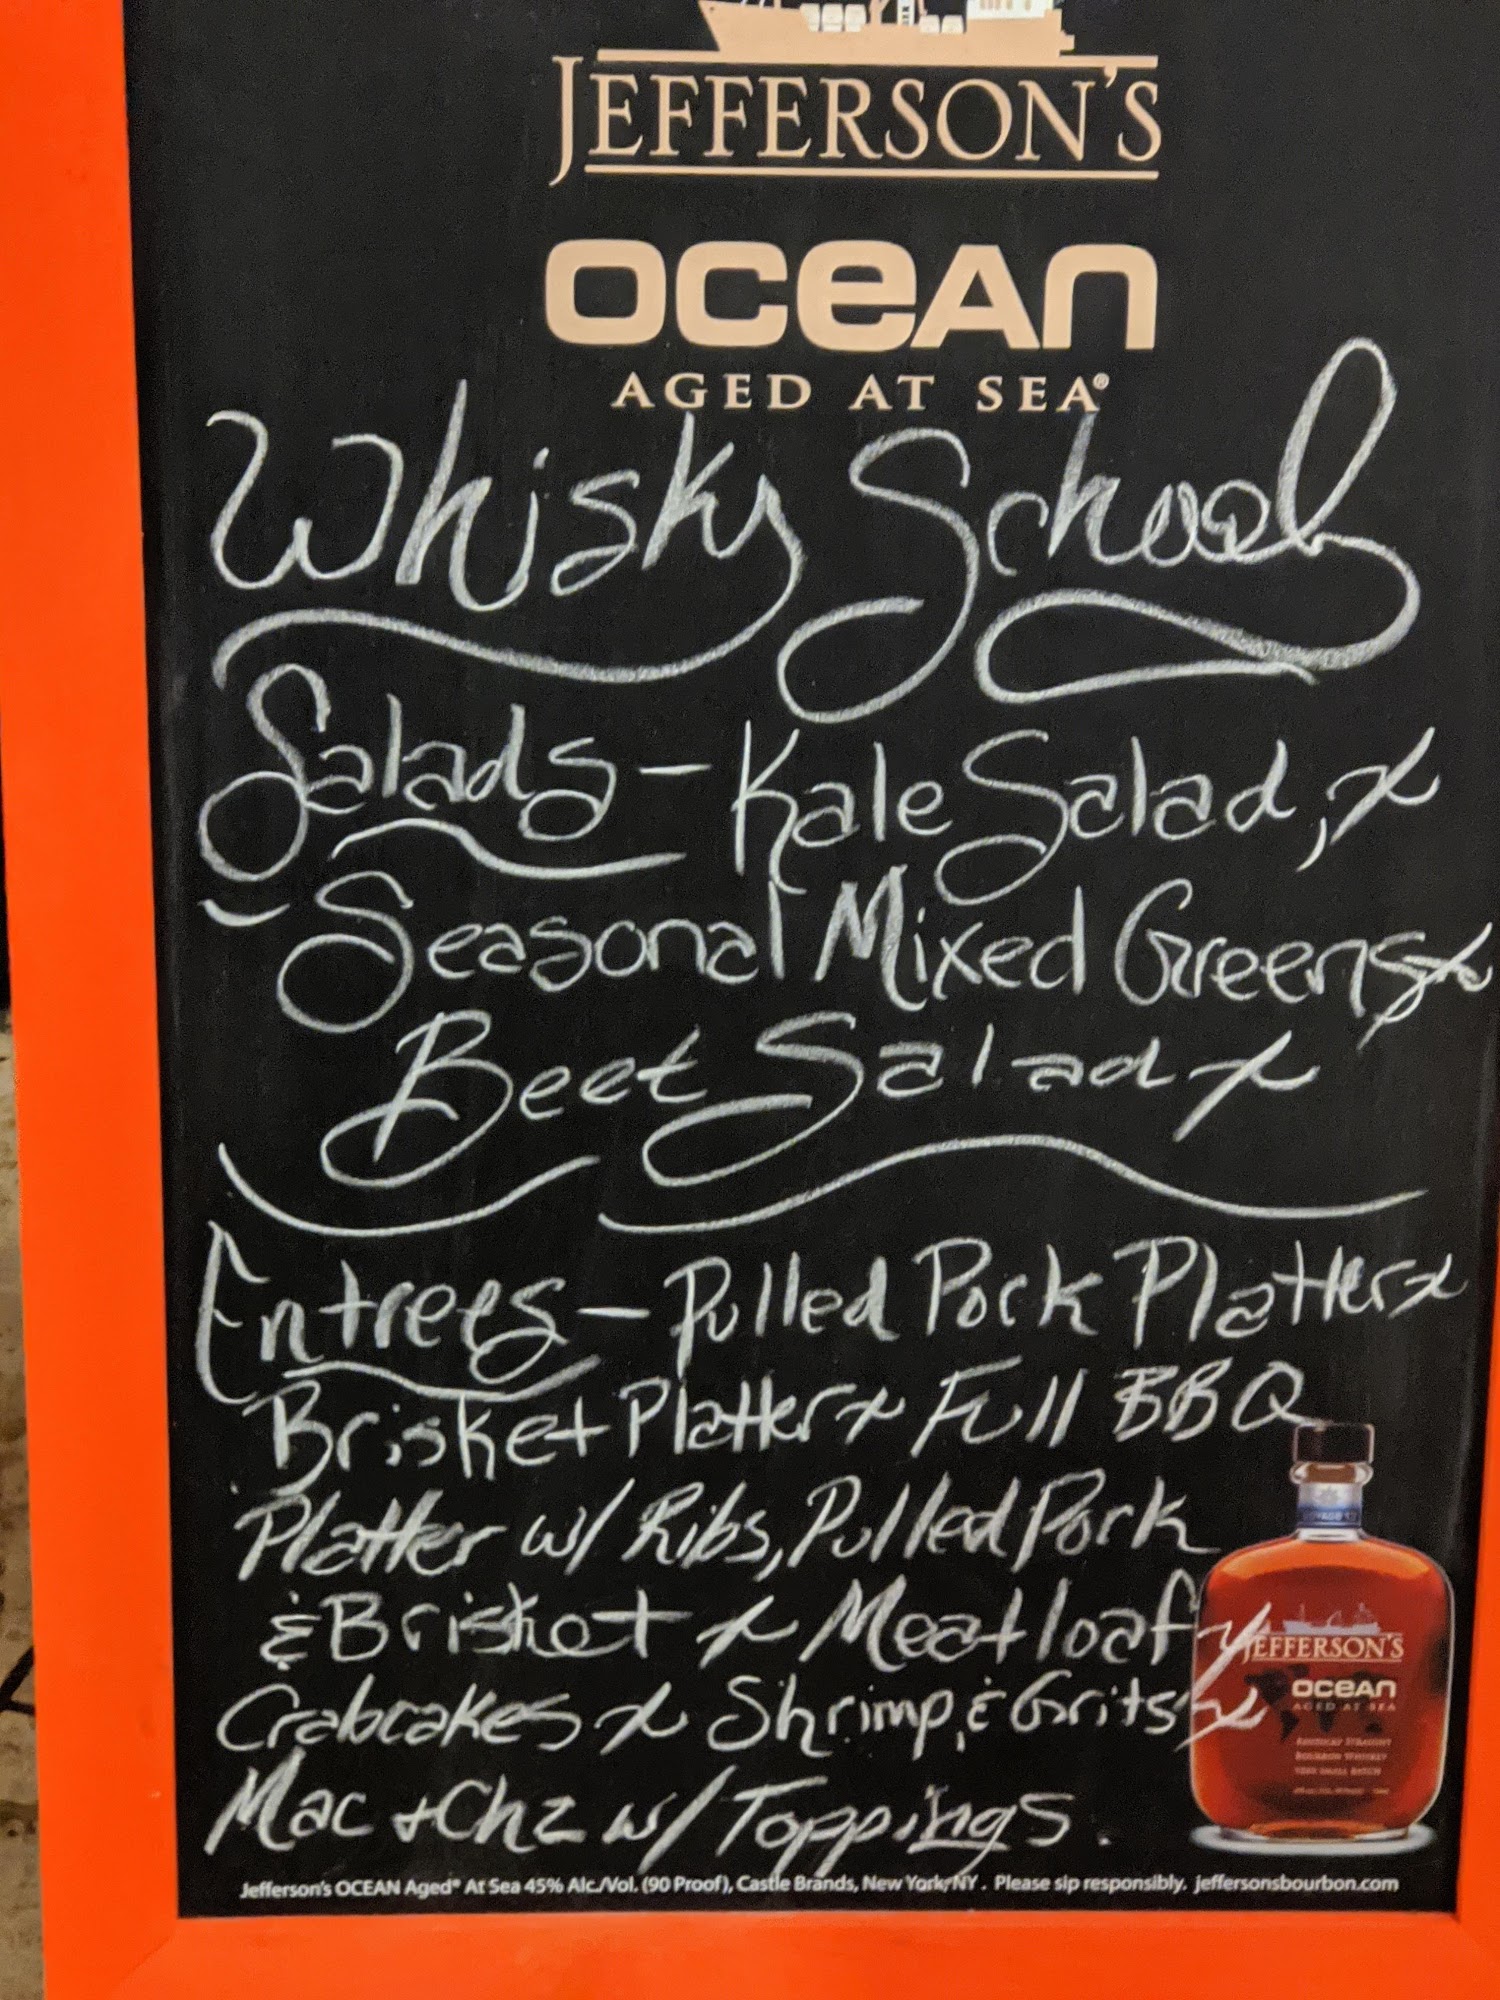 JEFFERSON'S
OCEAN
AGED AT SEA®
Whisky School
Salads - Kale Salad, ~
- Seasonal Mixed Greens ~
Beet Salad ~
Entrees - Pulled Pork Platter ~
Brisket Platter ~ Full BBQ
Platter w/ Ribs, Pulled Pork
& Brisket ~ Meatloaf ~
Crabcakes ~ Shrimp & Grits ~
Mac + Chz w/ Toppings.
VOYAGE
JEFFERSON'S
OCEAN
AGED AT SEA
KENTUCKY STRAIGHT
BOURBON WHISKEY
VERY SMALL BATCH
Jefferson's OCEAN Aged® At Sea 45% Alc./Vol. (90 Proof), Castle Brands, New York, NY. Please sip responsibly. jeffersonsbourbon.com